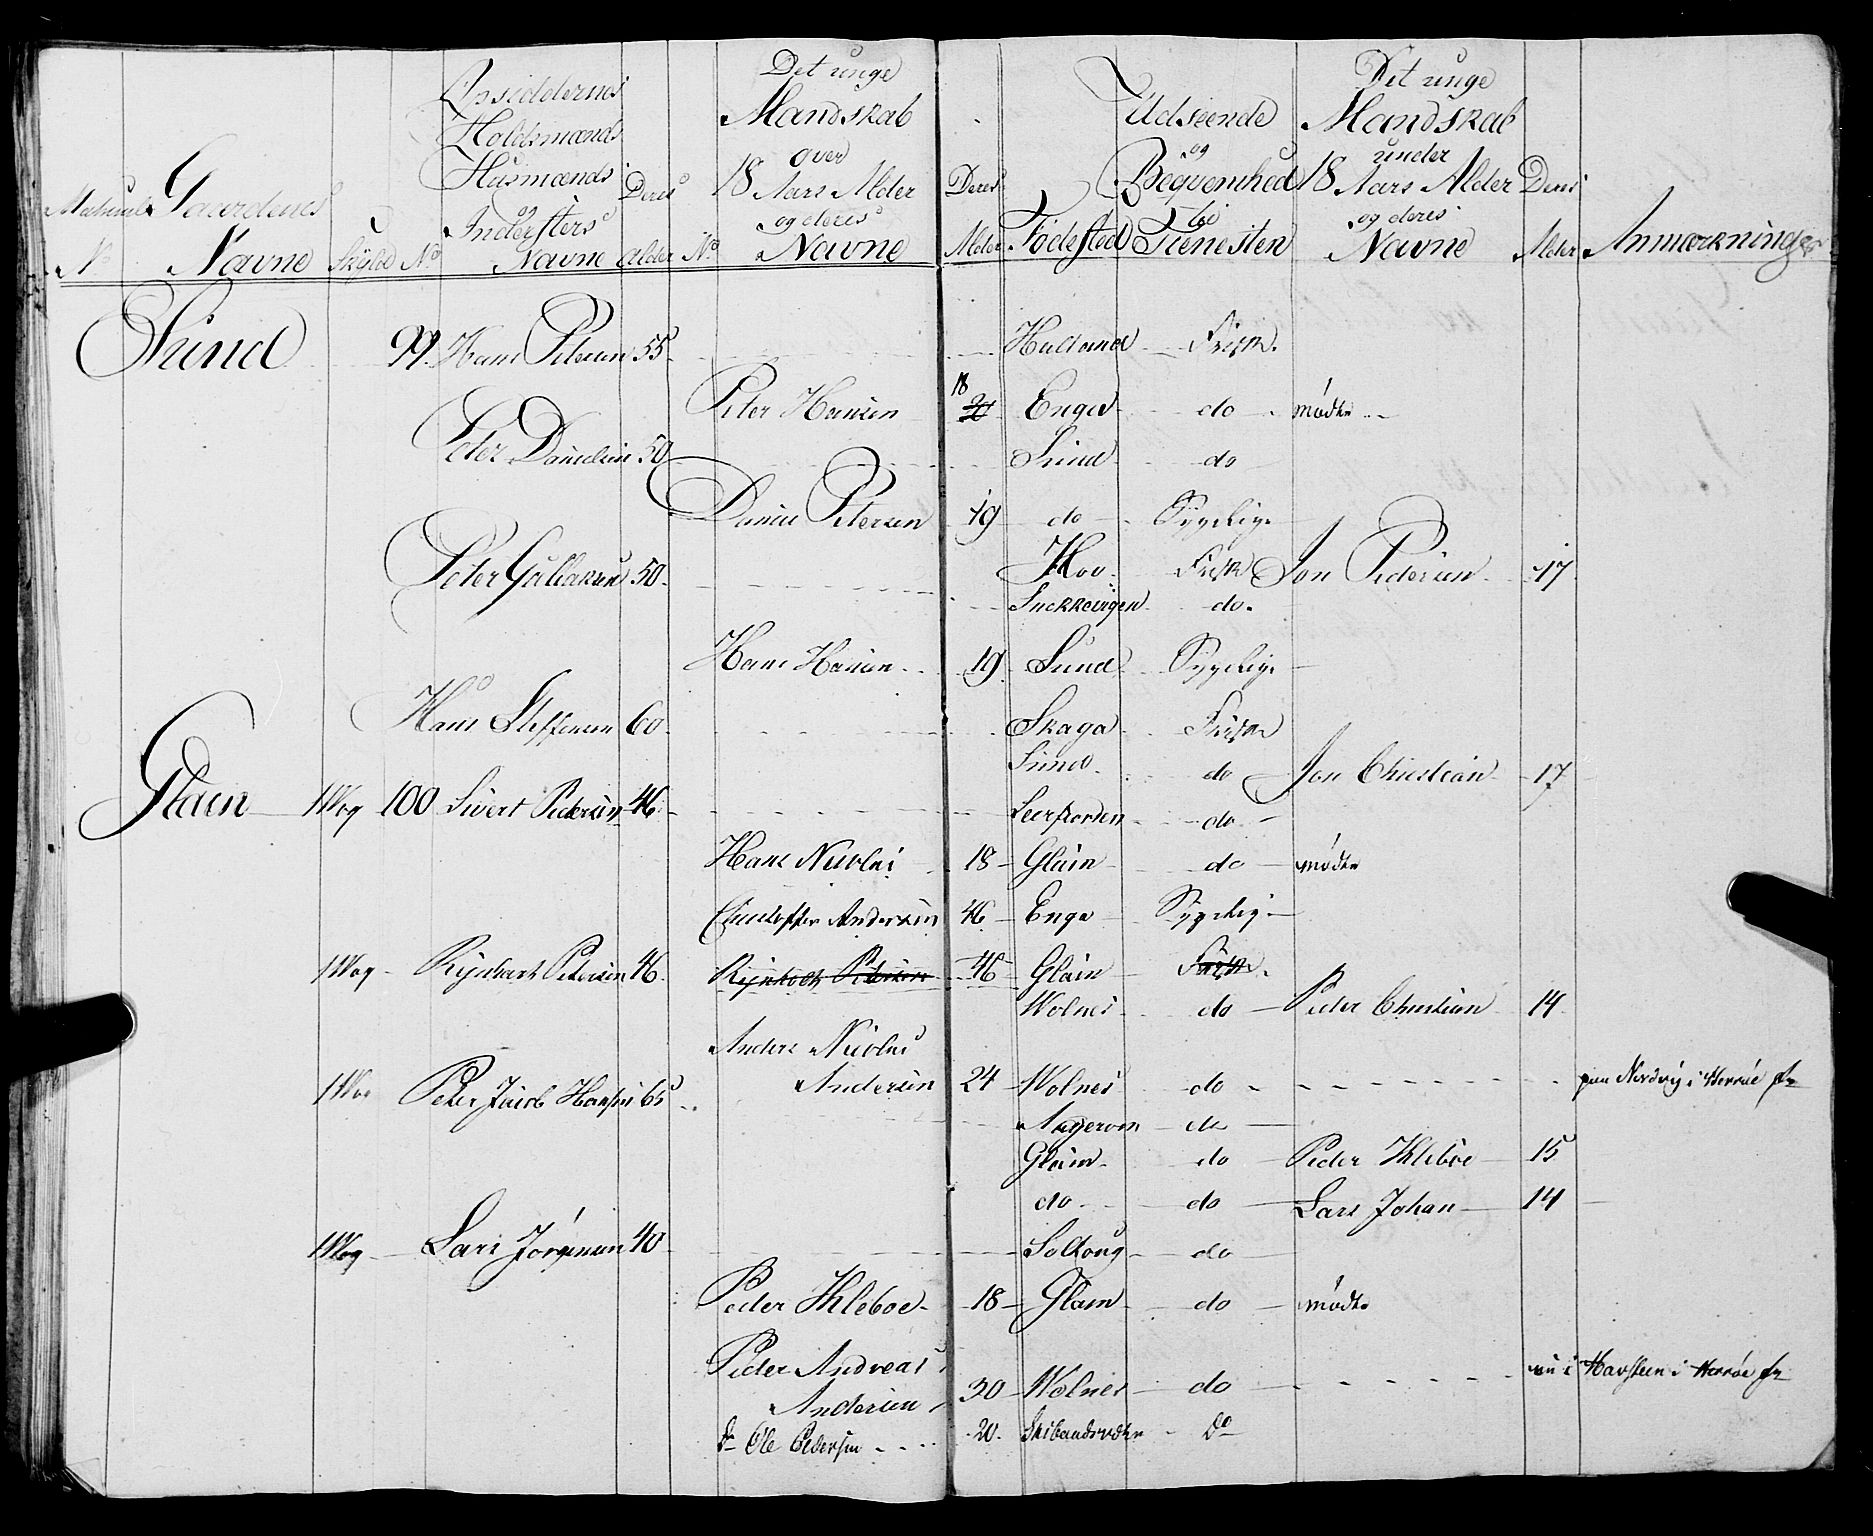 Opsiddernes
Holdsmænds
Huusmænds
og
Indersters
Navne
Gaardenes
Navne
No
Skyld
No
Deres
Alder
No
Det unge
Mandskab
over
18 Aars Alder
og deres
Navne
Deres
Alder
Fødested
Udseende
og
Beqvemhed
Tienesten
Det unge
Mandskab
under
18 Aars Alder
og deres
Navne
Deres
Alder
Anmærkninger
Sund 99. Hans Petersen 55 Halland Frisk.
Peter Hansen 18 20 Enge do mødte
Peter Danielsen 50 Sund do
Daniel Petersen 19 do Sygelig
Peter Gulliksen 50 Hov Frisk Jon Pedersen 17
Snekkevigen do.
Hans Hansen 19 Sund Sygelig
Hans Steffensen 60 Skaga Frisk
Sund do Jon Christian 17
Glain 1 Wog 100 Sivert Pedersen 46 Leerfiorden do
Hans Nicolai 18 Glain do mødte
Christoffer Andersen 46 Enge Sygelig
1 Wog Rynhart Petersen 46 Rynholt Petersen 46 Glain Frisk.
Wolnes do Peder Christian 14
Anders Nicolai
1 Wog Peter Jacob Hansen 65 Andersen 24 Wolnes do paa Nordvig i Herrøe
Aagervon do
Glain do Peder Kleboe 15
do do Lars Johan 14
1 Wog Lars Jørgensen 40 Soltoug do
Peder Kleboe 18 Glain do mødte
Peder Andreas
Andersen 30 Wolnes do nu i Havsteen i Herrøe
Ole Pedersen 20. Skibaadsvær Do